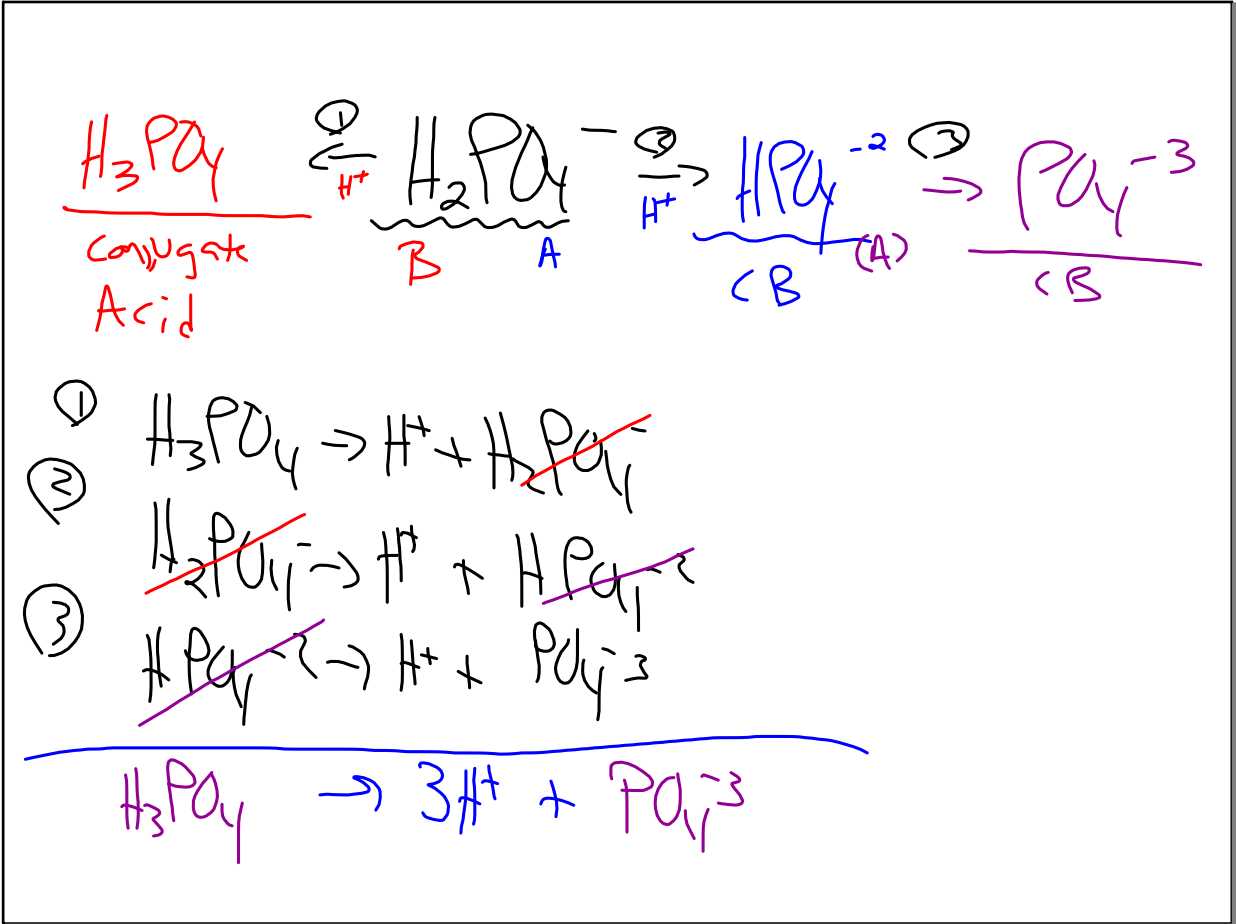 H₃PO₄ ① ←H⁺ H₂PO₄⁻ ② →H⁺ HPO₄⁻² ③ → PO₄⁻³
Conjugate B A CB (A) CB
Acid
① H₃PO₄ → H⁺ + H₂PO₄⁻
② H₂PO₄⁻ → H⁺ + HPO₄⁻²
③ HPO₄⁻² → H⁺ + PO₄⁻³
H₃PO₄ → 3H⁺ + PO₄⁻³